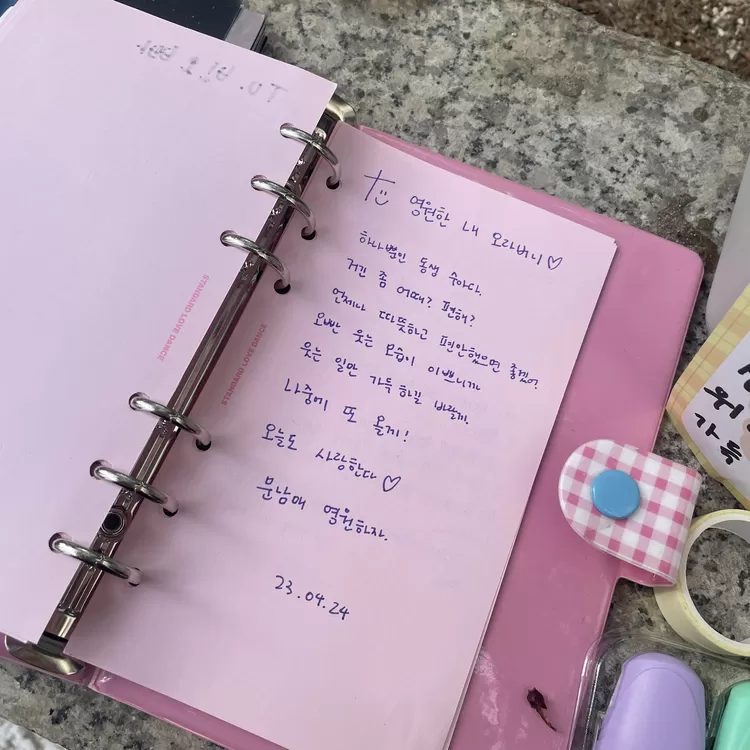 To. 빈이 오빠
영원한 내 오라버니♡
하나뿐인 동생 수아다.
거긴 좀 어때? 편해?
언제나 따뜻하고 편안했으면 좋겠어.
오빤 웃는 모습이 이쁘니까
웃는 일만 가득하길 바랄게.
나중에 또 올게!
오늘도 사랑한다♡
문남매 영원하자.
23.04.24
STANDARD LOVE DANCE
STANDARD LOVE DANCE
가득